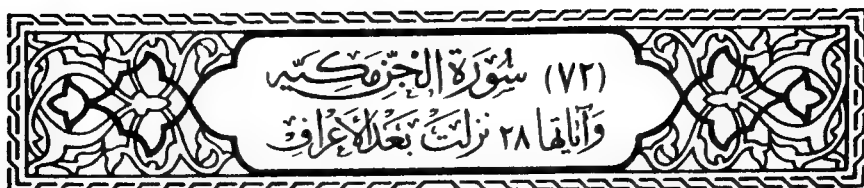 (٧٢) سُورَةُ الْجِنِّ مَكِّيَّة
وَآيَاتُهَا ٢٨ نَزَلَتْ بَعْدَ الْأَعْرَافِ